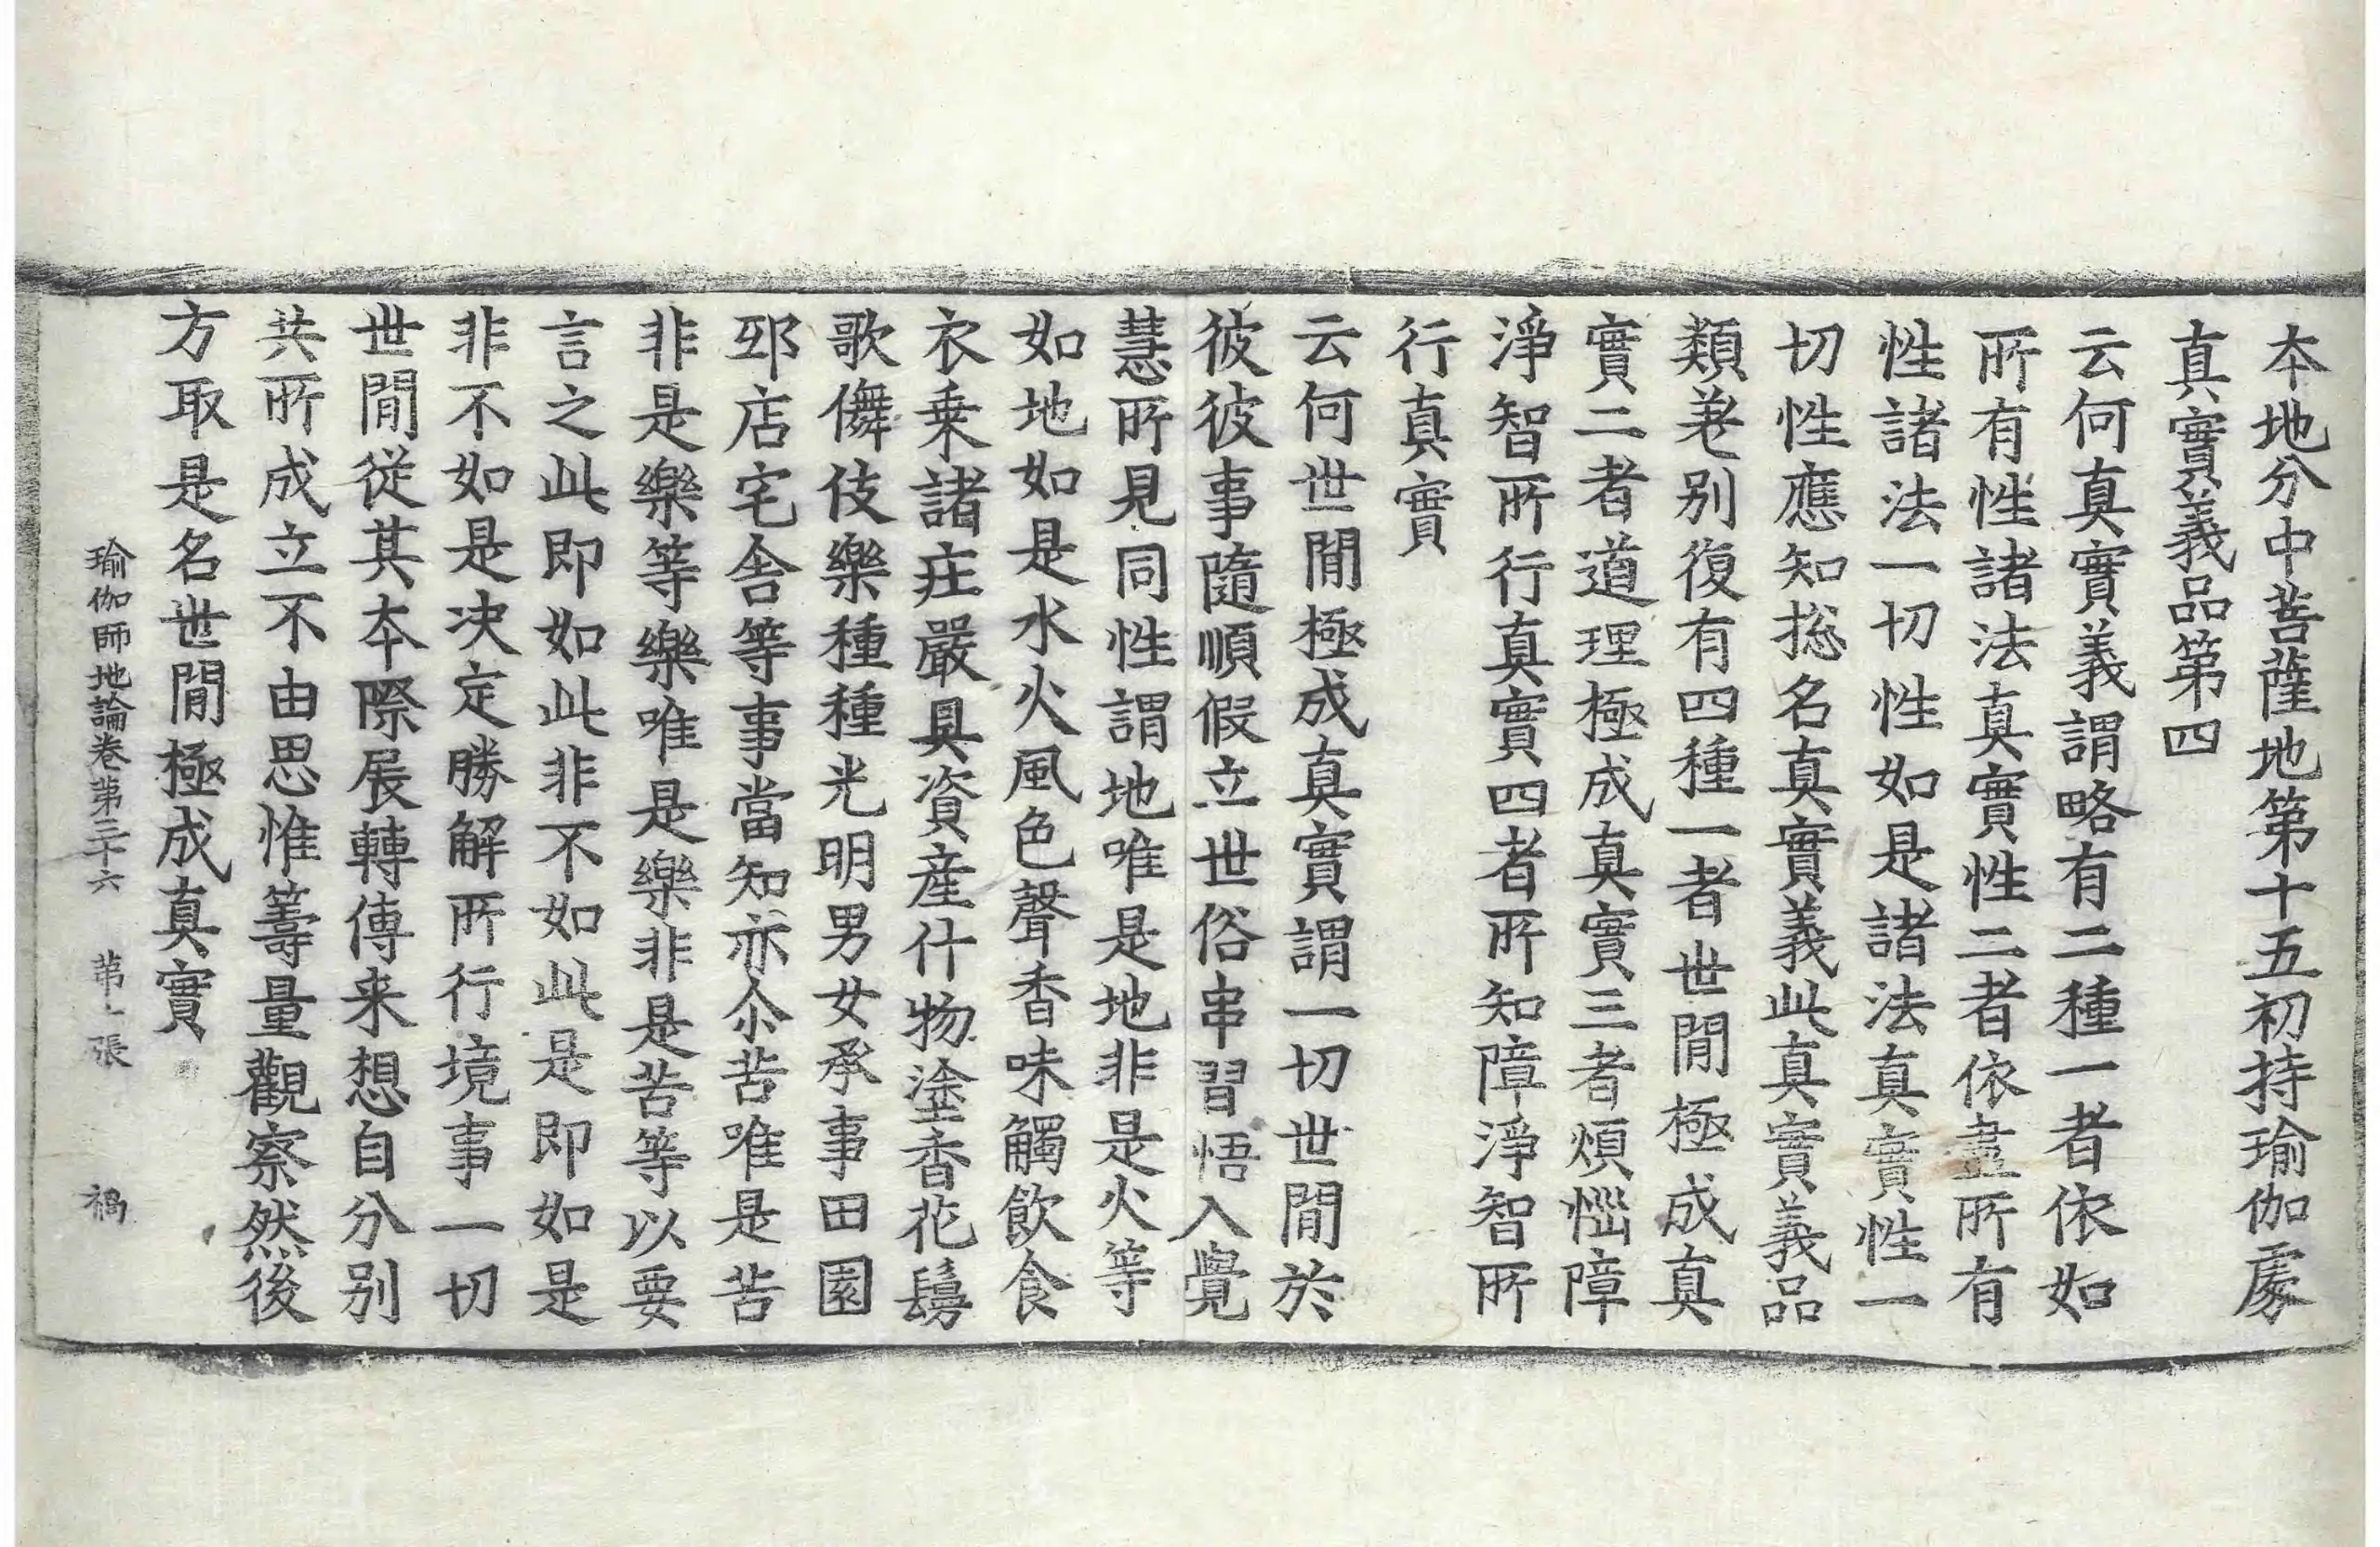 本地分中菩薩地第十五初持瑜伽處
真實義品第四
云何真實義謂略有二種一者依如
所有性諸法真實性二者依盡所有
性諸法一切性如是諸法真實性一
切性應知捴名真實義此真實義品
類差别復有四種一者世閒極成真
實二者道理極成真實三者煩惱障
淨智所行真實四者所知障淨智所
行真實
云何世閒極成真實謂一切世閒於
彼彼事隨順假立世俗串習悟入覺
慧所見同性謂地唯是地非是火等
如地如是水火風色聲香味觸飲食
衣乗諸庄嚴具資產什物塗香花鬘
歌儛伎樂種種光明男女承事田園
邸店宅舍等事當知亦尒苦唯是苦
非是樂等樂唯是樂非是苦等以要
言之此即如此非不如此是即如是
非不如是决定勝解所行境事一切
世閒從其本際展轉傳来想自分别
共所成立不由思惟籌量觀察然後
方取是名世閒極成真實
瑜伽師地論卷第三十六 苐 張